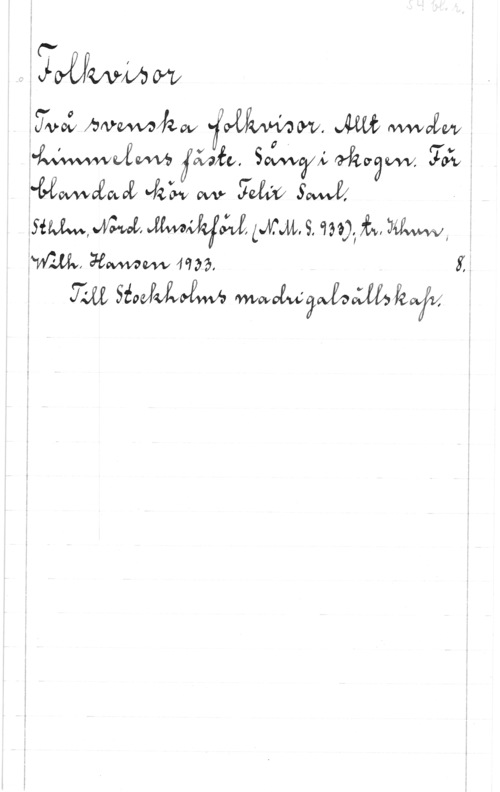 54 bl. 2.
Folkvisor
Två svenska folkvisor. Allt under
himmelens fäste. Sång i skogen. För
blandad kör av Felix Saul.
Sthlm, Nord. Musikförl. (N.M.S. 933); tr. Khvn,
Wilh. Hansen 1933. 8.
Till Stockholms madrigalsällskap.